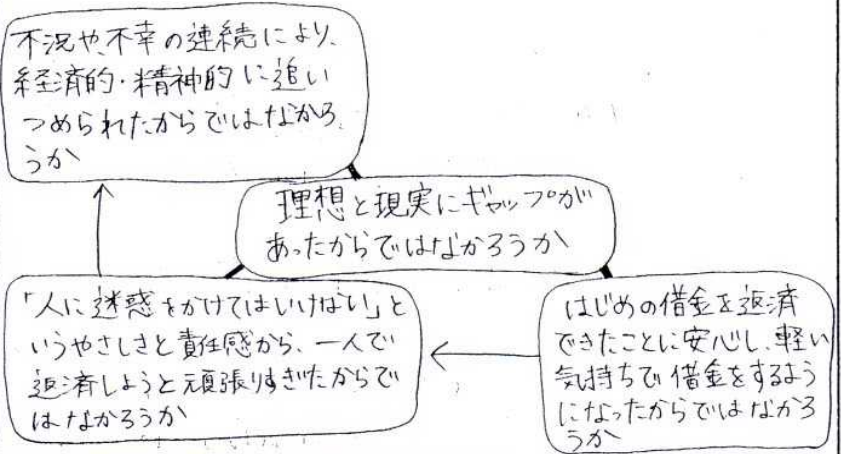 不況や、不幸の連続により、
経済的・精神的に追い
つめられたからではなかろ
うか
理想と現実にギャップが
あったからではなかろうか
「人に迷惑をかけてはいけない」と
いうやさしさと責任感から、一人で
返済しようと頑張りすぎたからで
はなかろうか
はじめの借金を返済
できたことに安心し、軽い
気持ちで借金をするよう
になったからではなかろ
うか